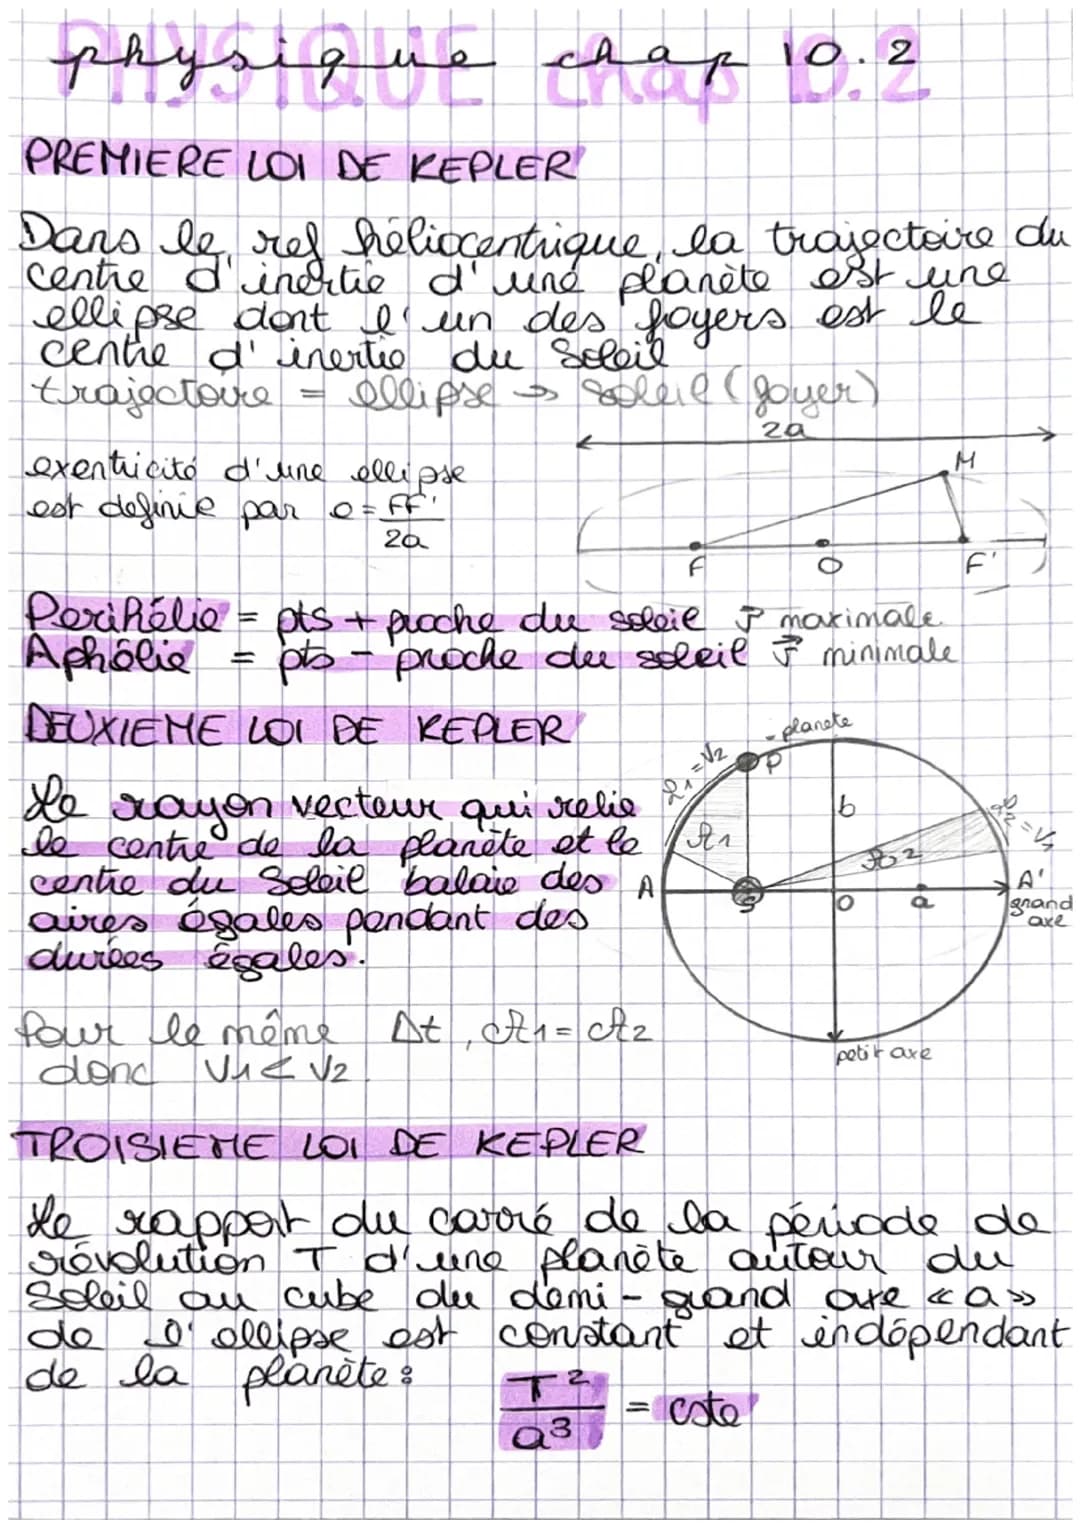 physique chap 10.2
PHYSIQUE chap 10.2
PREMIERE LOI DE KEPLER
Dans le ref héliocentrique, la trajectoire du
centre d'inertie d'une planète est une
ellipse dont l'un des foyers est le
centre d'inertie du Soleil
trajectoire = ellipse → soleil (foyer)
2a
exentricité d'une ellipse
est definie par e = FF'/2a
M
F O F'
Perihélie = pts + proche du soleil maximale
Aphélie = pts - proche du soleil minimale
DEUXIEME LOI DE KEPLER
planete
P
Le rayon vecteur qui relie
le centre de la planète et le
centre du Soleil balaie des
aires égales pendant des
durées égales.
b
A1
A2
A S O a A'
grand
axe
petit axe
Pour le même Δt, A1 = A2
donc V1 < V2
TROISIEME LOI DE KEPLER
Le rapport du carré de la période de
révolution T d'une planète autour du
Soleil au cube du demi-grand axe «a»
de l'ellipse est constant et indépendant
de la planète :
T²/a³ = cste